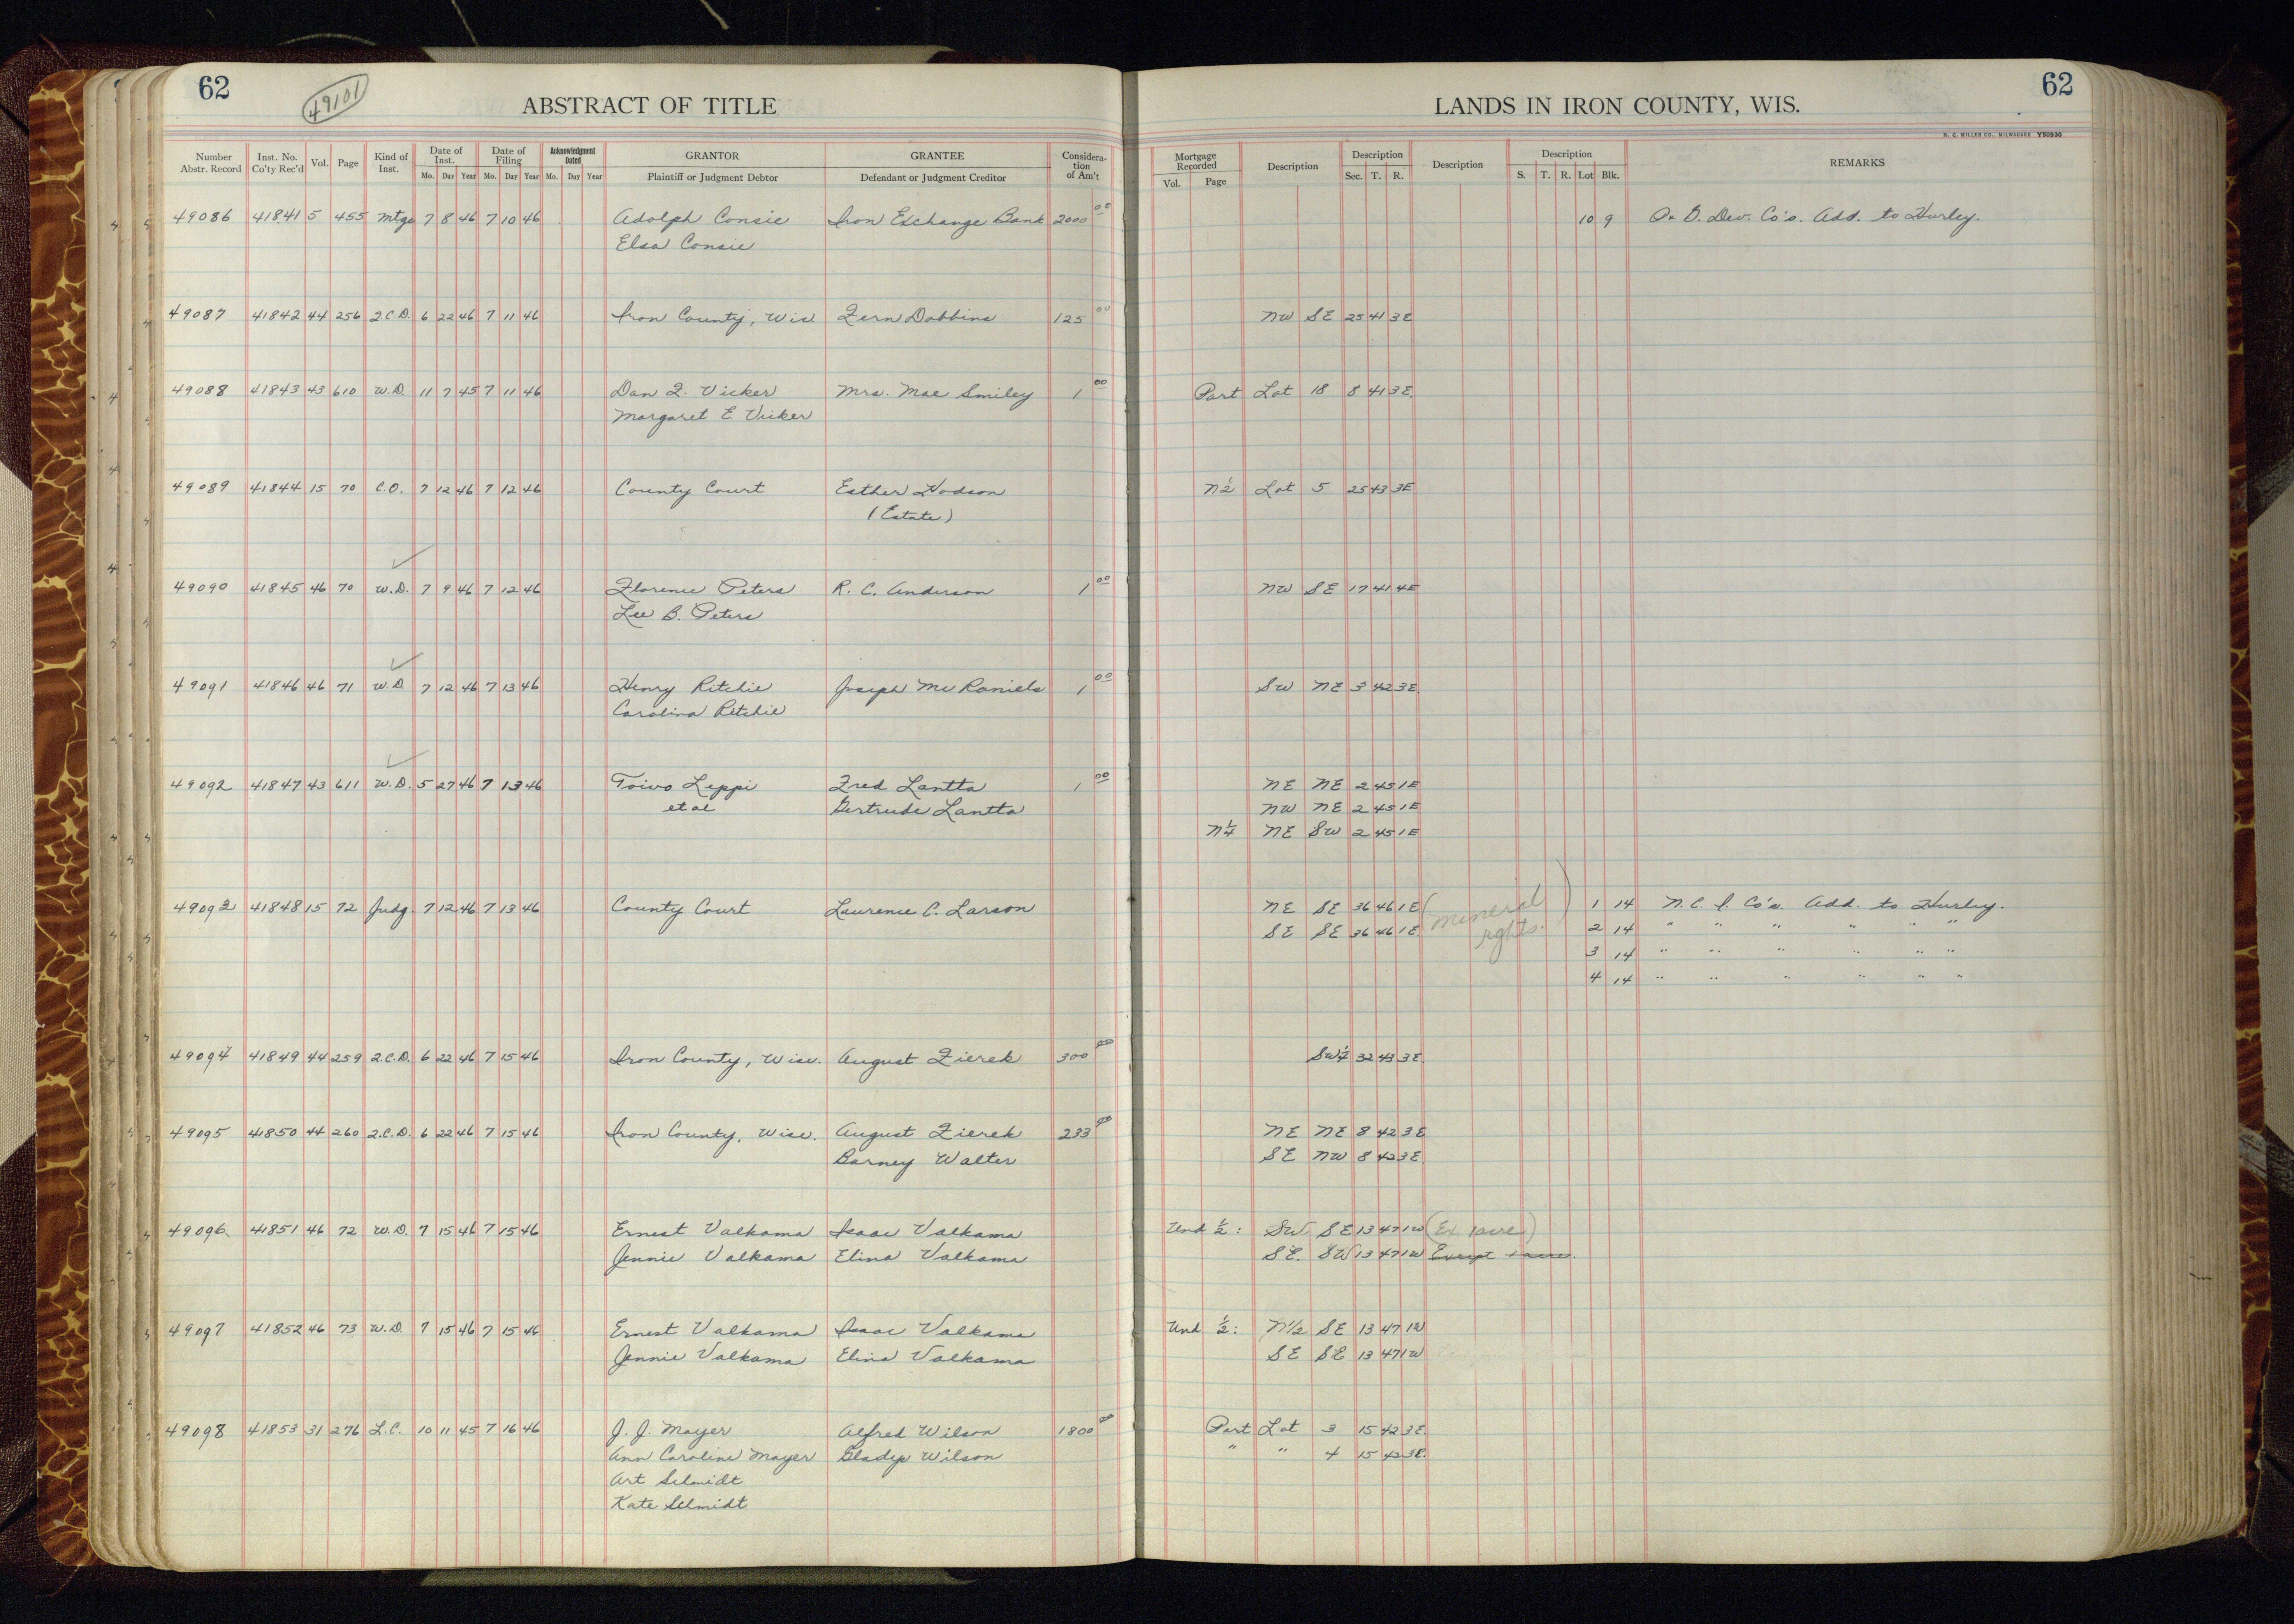 62
49101
ABSTRACT OF TITLE
LANDS IN IRON COUNTY, WIS.
62
H. C. MILLER CO., MILWAUKEE Y50930
Number Abstr. Record Inst. No. Co'ty Rec'd Vol. Page Kind of Inst. Date of Inst. Mo. Day Year Date of Filing Mo. Day Year Acknowledgment Dated Mo. Day Year GRANTOR Plaintiff or Judgment Debtor GRANTEE Defendant or Judgment Creditor Consideration of Am't Mortgage Recorded Vol. Page Description Description Sec. T. R. Description Description S. T. R. Lot Blk. REMARKS
49086 41841 5 455 Mtge 7 8 46 7 10 46 Adolph Consie Iron Exchange Bank 2000 00 10 9 Dev. Co's. Add. to Hurley.
Elsa Consie
49087 41842 44 256 2.C.D. 6 22 46 7 11 46 Iron County, Wis. Fern Dobbins 125 00 NW SE 25 41 3E
49088 41843 43 610 W.D. 11 7 45 7 11 46 Dan F. Vicker Mrs. Mae Smiley 1 00 Part Lot 18 8 41 3E.
Margaret E. Vicker
49089 41844 15 70 C.O. 7 12 46 7 12 46 County Court Esther Hodson N½ Lot 5 25 43 3E
(Estate)
49090 41845 46 70 W.D. 7 9 46 7 12 46 Florence Peters R. C. Anderson 1 00 NW SE 17 41 4E
Lee B. Peters
49091 41846 46 71 W.D. 7 12 46 7 13 46 Henry Ritchie Joseph Mc Raniels 1 00 SW NE 3 42 3E.
Carolina Ritchie
49092 41847 43 611 W.D. 5 27 46 7 13 46 Toivo Leppi Fred Lantta 1 00 NE NE 2 45 1E
et al Gertrude Lantta NW NE 2 45 1E
N¼ NE SW 2 45 1E
49093 41848 15 72 Judg. 7 12 46 7 13 46 County Court Laurence C. Larson NE SE 36 46 1E (mineral rghts.) 1 14 N. C. I. Co's. Add. to Hurley.
SE SE 36 46 1E 2 14 " " " " " "
3 14 " " " " " "
4 14 " " " " " "
49094 41849 44 259 2.C.D. 6 22 46 7 15 46 Iron County, Wisc. August Zierek 300 00 SW¼ 32 43 3E.
49095 41850 44 260 2.C.D. 6 22 46 7 15 46 Iron County, Wisc. August Zierek 233 00 NE NE 8 42 3E
Barney Walter SE NW 8 42 3E.
49096 41851 46 72 W.D. 7 15 46 7 15 46 Ernest Valkama Isaac Valkama Und ½: SW. SE 13 47 1W (Ex 1 acre)
Jennie Valkama Elina Valkama SE. SW 13 47 1W Except 1 acre.
49097 41852 46 73 W.D. 7 15 46 7 15 46 Ernest Valkama Isaac Valkama Und ½: N1/2 SE 13 47 1W
Jennie Valkama Elina Valkama SE SE 13 47 1W
49098 41853 31 276 L.C. 10 11 45 7 16 46 J. J. Mayer Alfred Wilson 1800 00 Part Lot 3 15 42 3E.
Ann Caroline Mayer Gladys Wilson " " 4 15 42 3E.
Art Schmidt
Kate Schmidt